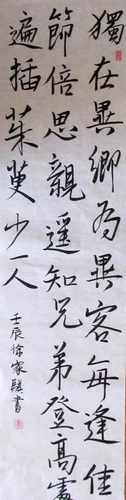 獨在異鄉為異客每逢佳
節倍思親遥知兄弟登高處
遍插茱萸少一人
壬辰徐家騏書